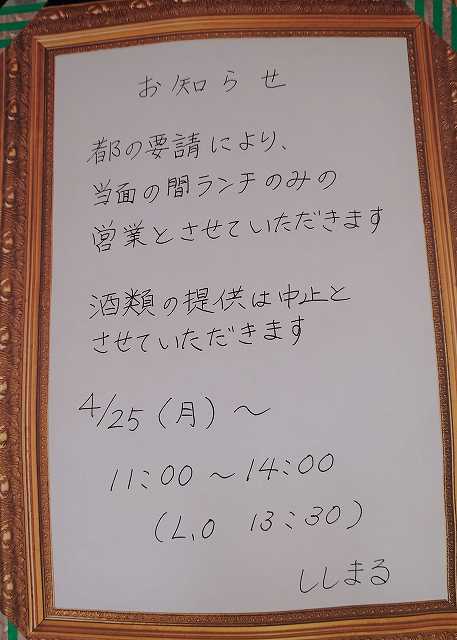 お知らせ
都の要請により、
当面の間ランチのみの
営業とさせていただきます
酒類の提供は中止と
させていただきます
4/25(月)～
11:00～14:00
(L.O 13:30)
ししまる